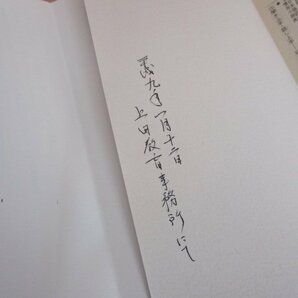 平成九年一月十二日
上田教育事務所にて